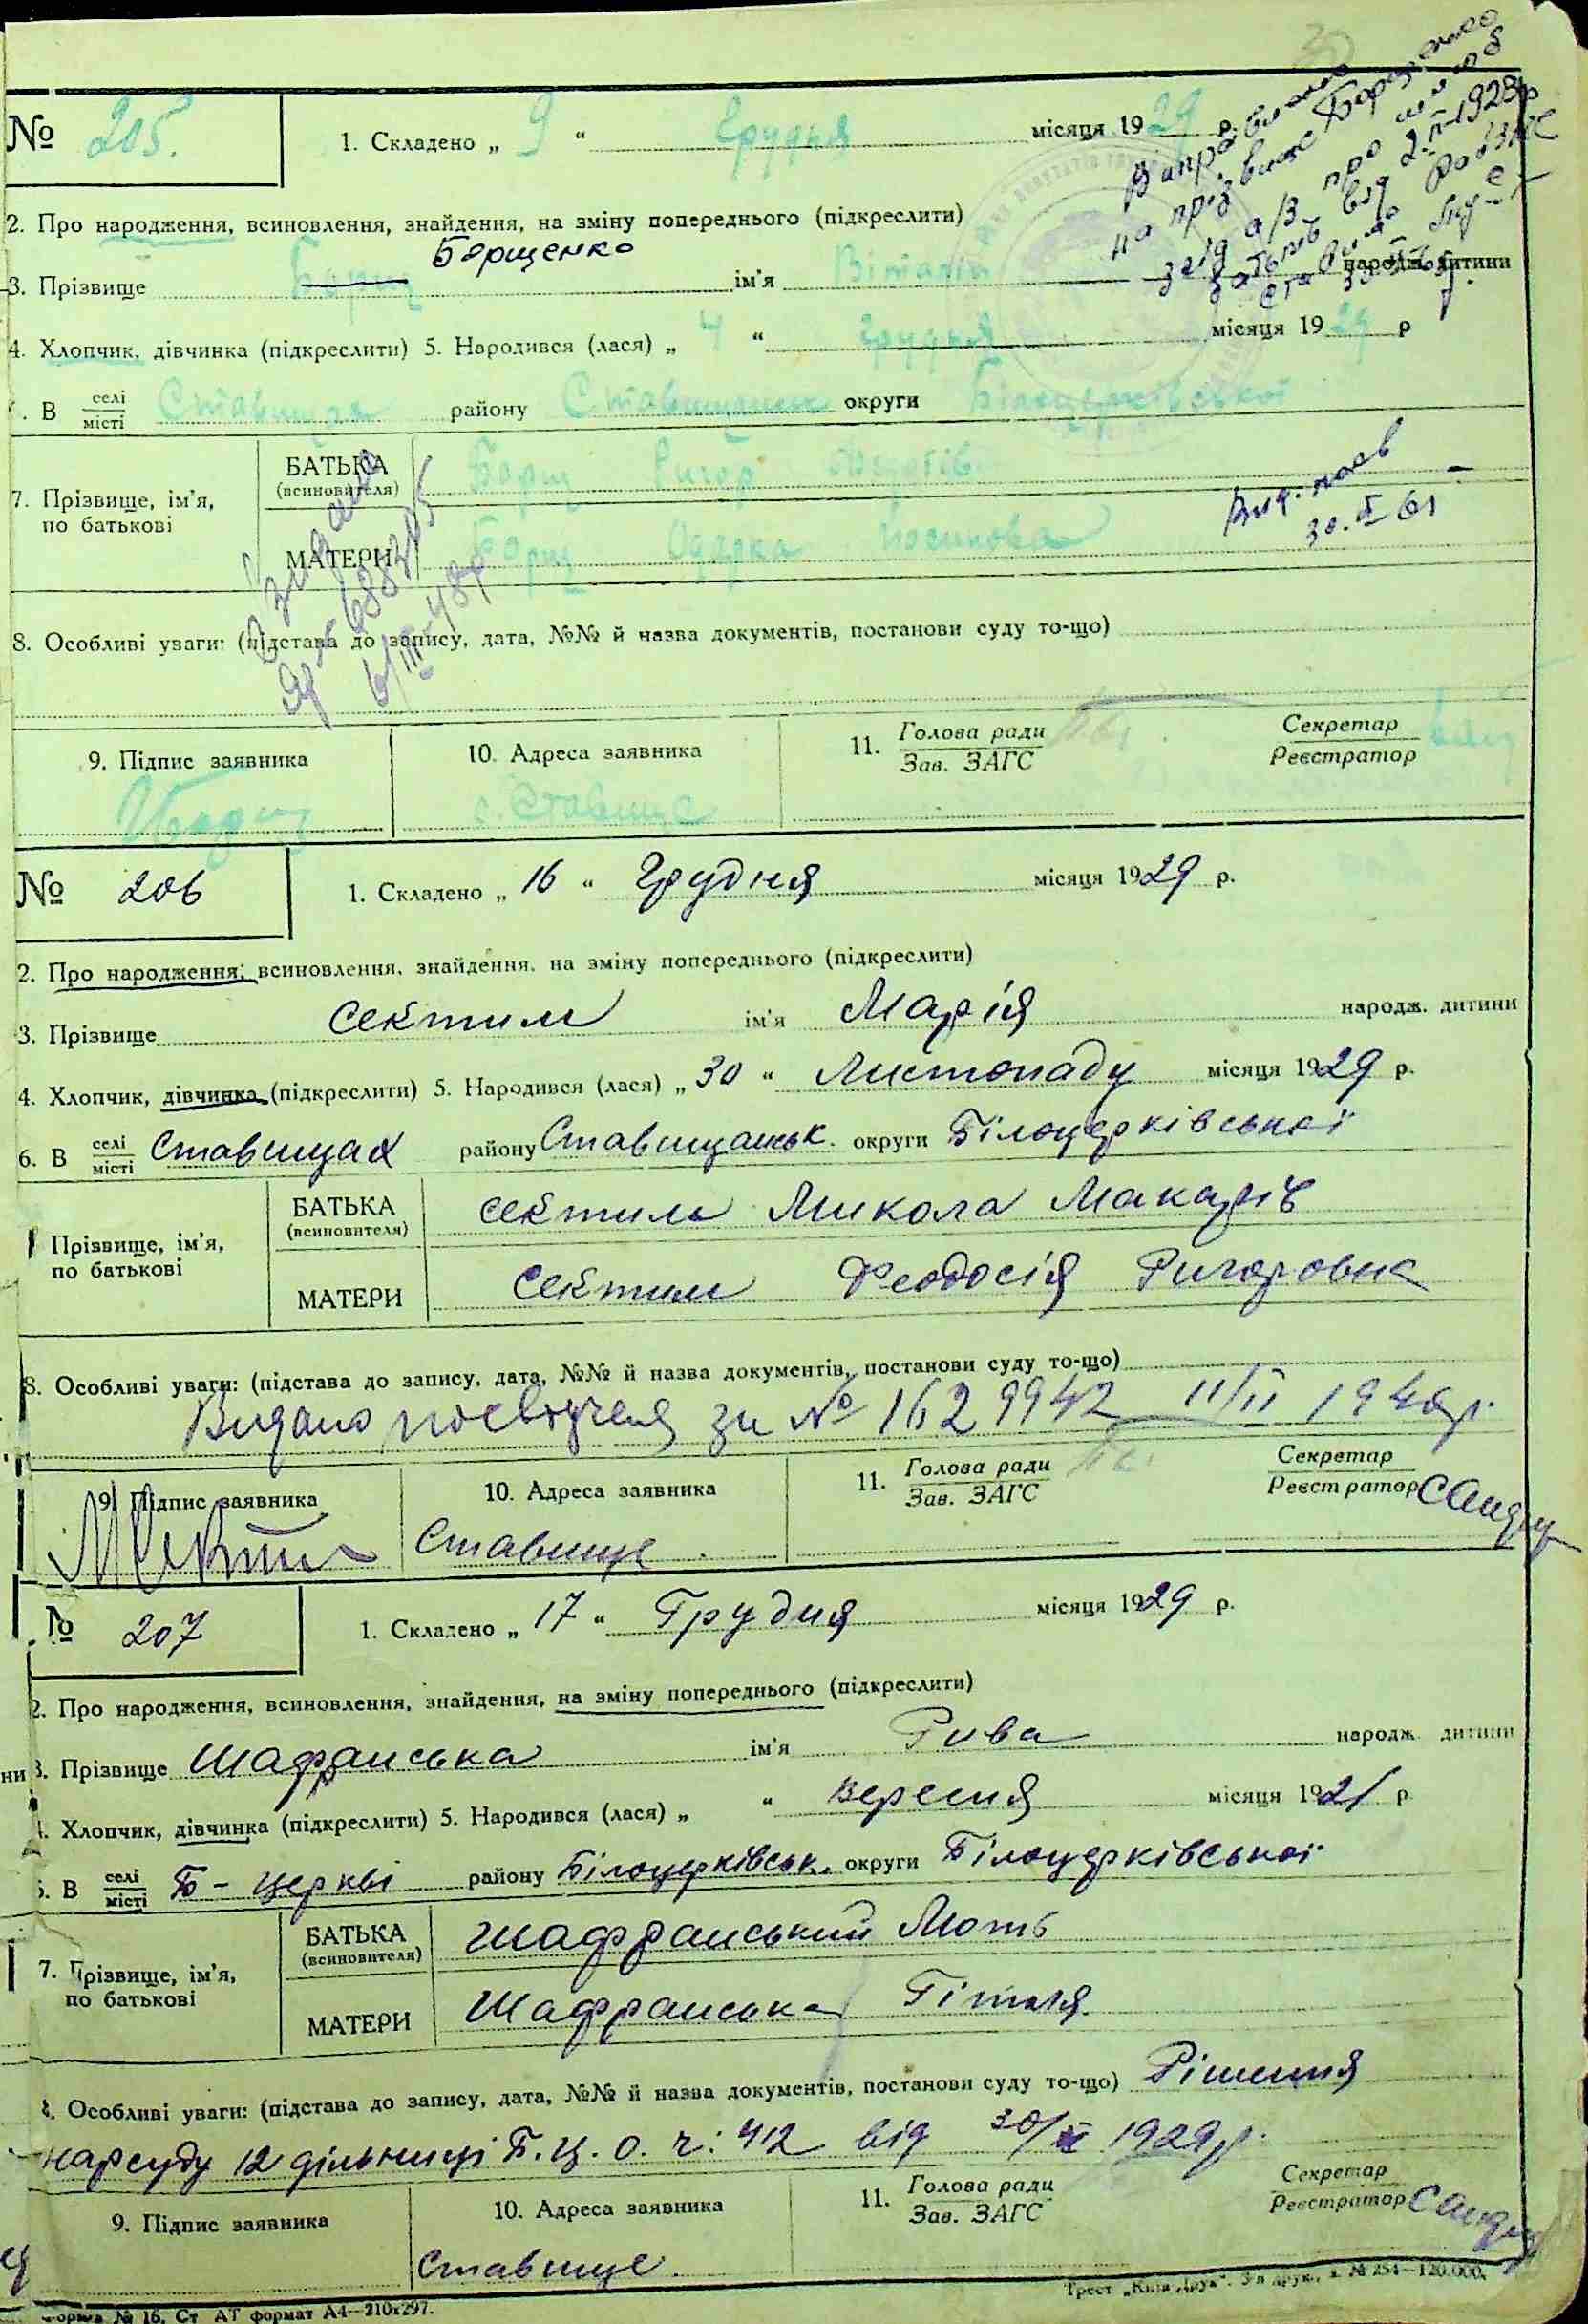 № 205. 1. Складено „ 9 “ Грудня місяця 1929 р.
Виправлено
на прізвище Борщенко
згід а/з про шлюб
2.II-1928р
2. Про народження, всиновлення, знайдення, на зміну попереднього (підкреслити)
Борщенко
3. Прізвище Борщ ім'я Віталій народж. дитини
4. Хлопчик, дівчинка (підкреслити) 5. Народився (лася) „ 4 “ Грудня місяця 1929 р
В селі місті Ставищах району Ставищанськ округи Білоцерківської
7. Прізвище, ім'я, по батькові
БАТЬКА (всиновителя) Борщ Ригор
МАТЕРИ Борщ Одарка
30.X-61
8. Особливі уваги: (підстава до запису, дата, №№ й назва документів, постанови суду то-що)
9. Підпис заявника
10. Адреса заявника
с. Ставище
11. Голова ради Зав. ЗАГС
Секретар Реєстратор
№ 206 1. Складено „ 16 “ Грудня місяця 1929 р.
2. Про народження, всиновлення, знайдення, на зміну попереднього (підкреслити)
3. Прізвище Сектим ім'я Марія народж. дитини
4. Хлопчик, дівчинка (підкреслити) 5. Народився (лася) „ 30 “ Листопаду місяця 1929 р.
6. В селі місті Ставищах району Ставищанськ. округи Білоцерківської
Прізвище, ім'я, по батькові
БАТЬКА (всиновителя) Сектим Микола Макарів
МАТЕРИ Сектим Феодосія Ригоровна
8. Особливі уваги: (підстава до запису, дата, №№ й назва документів, постанови суду то-що)
Видано посвідченя за № 1629942 11/II 1940р.
9. Підпис заявника
10. Адреса заявника
Ставище
11. Голова ради Зав. ЗАГС
Секретар Реєстратор
№ 207 1. Складено „ 17 “ Грудня місяця 1929 р.
2. Про народження, всиновлення, знайдення, на зміну попереднього (підкреслити)
3. Прізвище Шафранська ім'я Рива народж. дитини
4. Хлопчик, дівчинка (підкреслити) 5. Народився (лася) „ “ вересня місяця 1921 р
В селі місті Б-церкві району Білоцерківськ. округи Білоцерківської
7. Прізвище, ім'я, по батькові
БАТЬКА (всиновителя) Шафранський Моть
МАТЕРИ Шафранська Гітля.
Особливі уваги: (підстава до запису, дата, №№ й назва документів, постанови суду то-що) Рішення
нарсуду 12 дільниці Б.Ц.О. ч: 412 від 30/XI 1929р.
9. Підпис заявника
10. Адреса заявника
Ставище
11. Голова ради Зав. ЗАГС
Секретар Реєстратор
Форма № 16. Ст АТ формат А4—210х297.
Трест „Київ-Друк“. 3-я друк., з. № 254—120.000.